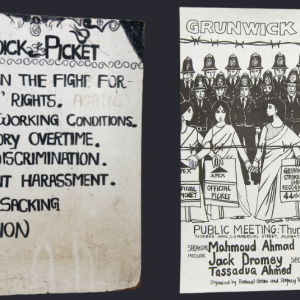 ICK PICKET
IN THE FIGHT FOR-
' RIGHTS. AGAINST
WORKING CONDITIONS.
ORY OVERTIME.
DISCRIMINATION.
NT HARASSMENT.
SACKING
ION
GRUNWICK
APEX
OFFICIAL
PICKET
APEX
OFFICIAL
PICKET
GRUNW
STRIKE
PUBLIC MEETING: Thur
SPEAKERS Mahmoud Ahmad
INCLUDE Jack Dromey SEC
Tassadua Ahmed
Organised by